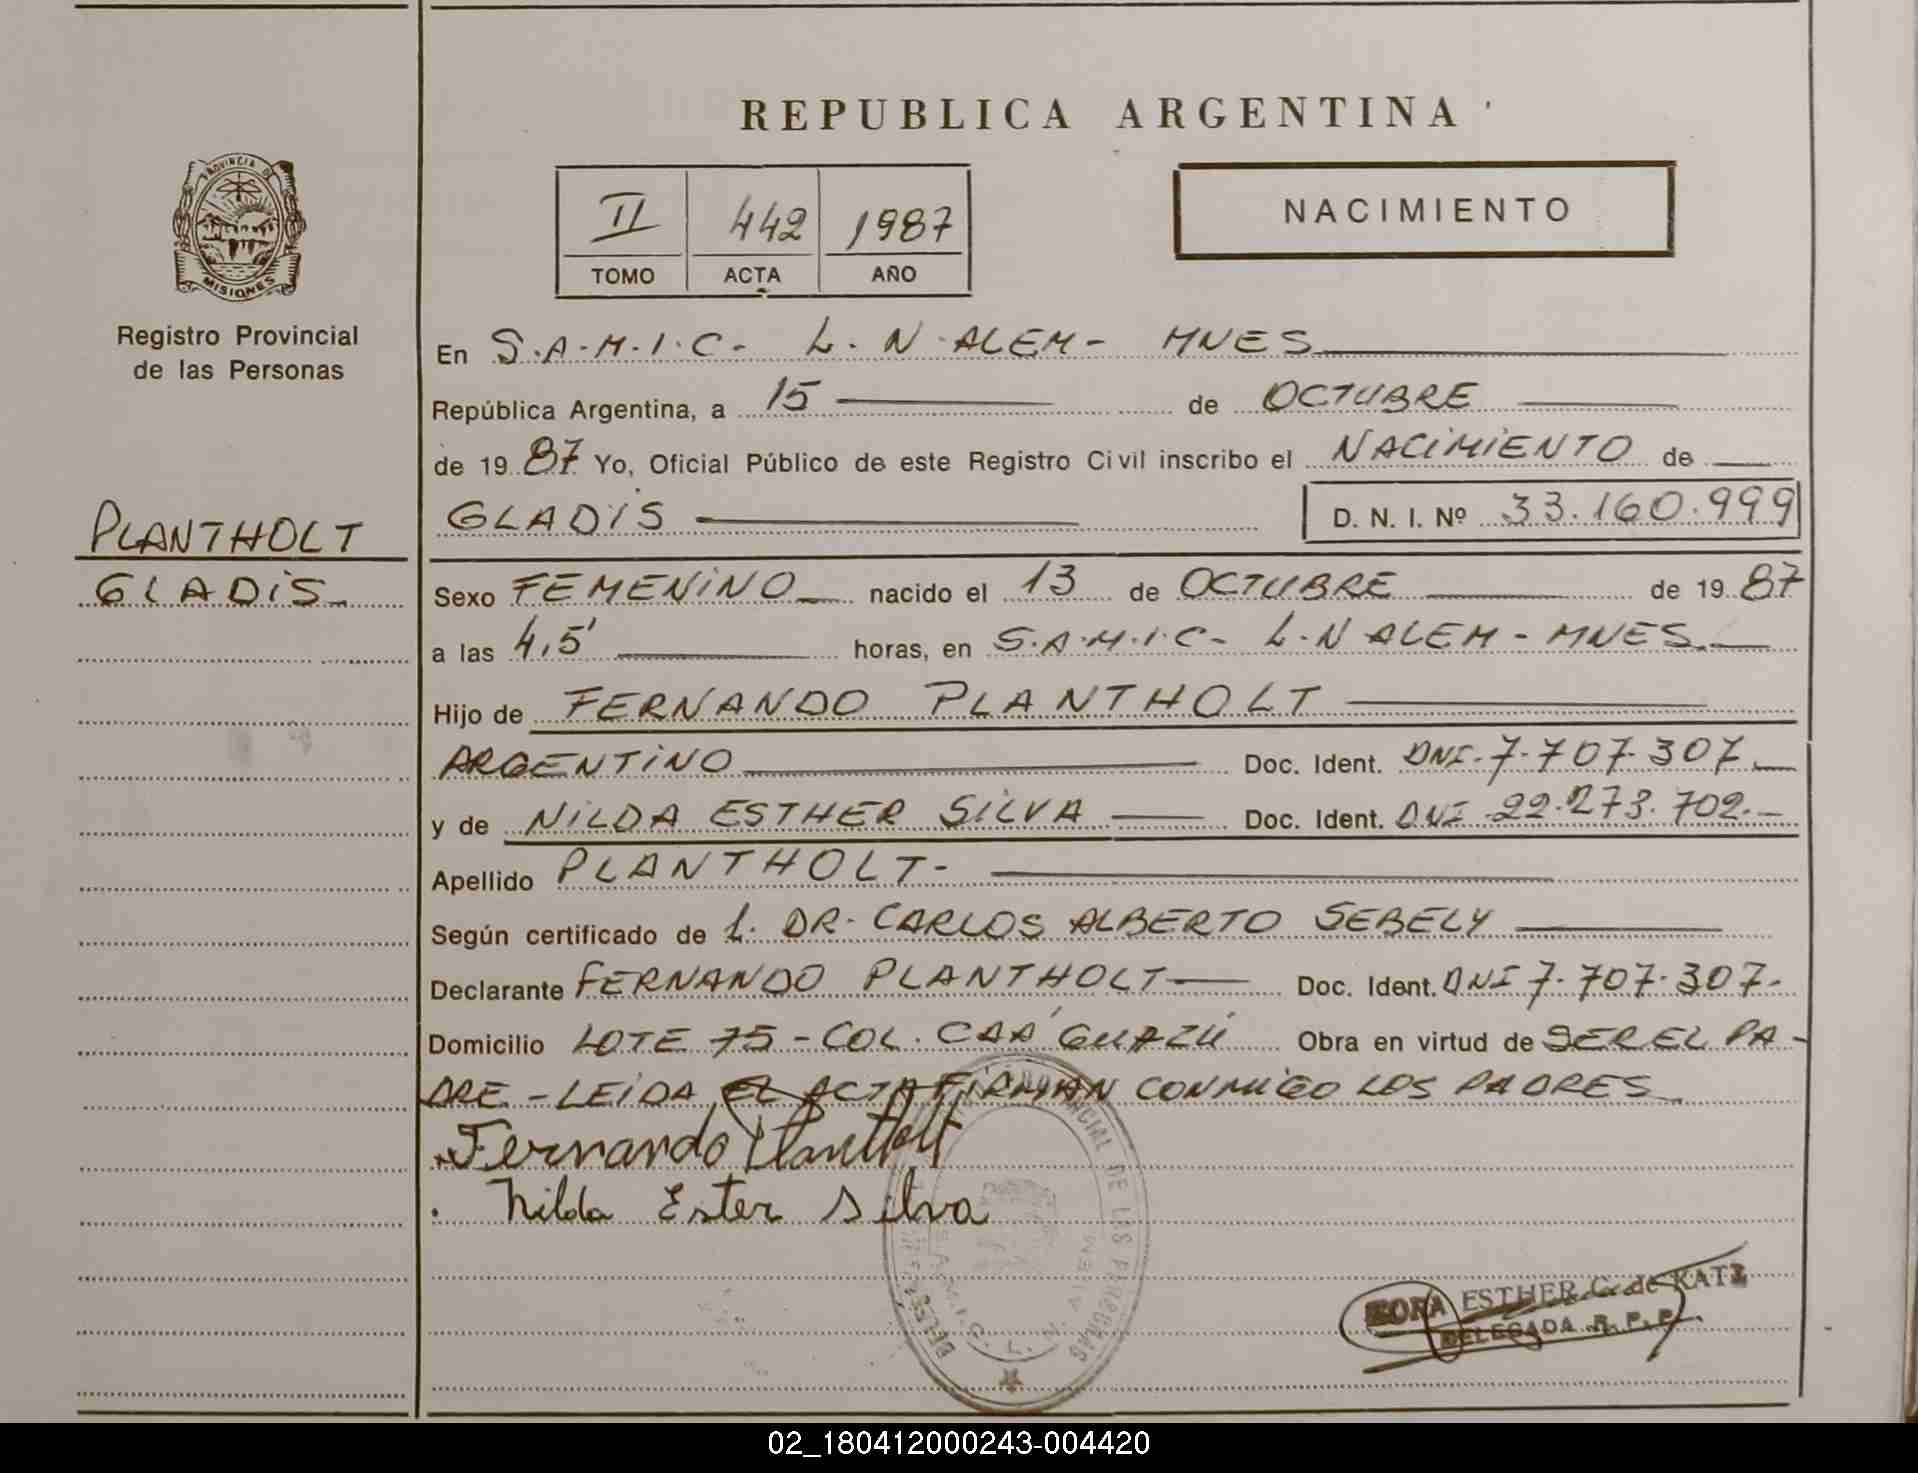 REPUBLICA ARGENTINA
PROVINCIA DE
MISIONES
Registro Provincial
de las Personas
II 442 1987
TOMO ACTA AÑO
NACIMIENTO
En S.A.M.I.C- L.N.ALEM- MNES
República Argentina, a 15 de OCTUBRE
de 1987 Yo, Oficial Público de este Registro Civil inscribo el NACIMIENTO de
PLANTHOLT
GLADIS
GLADIS D. N. I. Nº 33.160.999
Sexo FEMENINO nacido el 13 de OCTUBRE de 1987
a las 4,5' horas, en S.A.M.I.C- L.N ALEM - MNES.
Hijo de FERNANDO PLANTHOLT
ARGENTINO Doc. Ident. DNI-7.707.307
y de NILDA ESTHER SILVA Doc. Ident. DNI 22.273.702.-
Apellido PLANTHOLT-
Según certificado de L. DR. CARLOS ALBERTO SEBELY
Declarante FERNANDO PLANTHOLT Doc. Ident. DNI 7.707.307-
Domicilio LOTE 75 - COL. CAA GUAZÚ Obra en virtud de SER EL PA-
DRE - LEIDA EL ACTA FIRMAN CONMIGO LOS PADRES
Fernando Plantholt
Nilda Ester Silva
PROVINCIAL DE LAS PERSONAS
S.A.M.I.C. L. N. ALEM
ESTHER C. de KATZ
DELEGADA R. P. P.
02_180412000243-004420